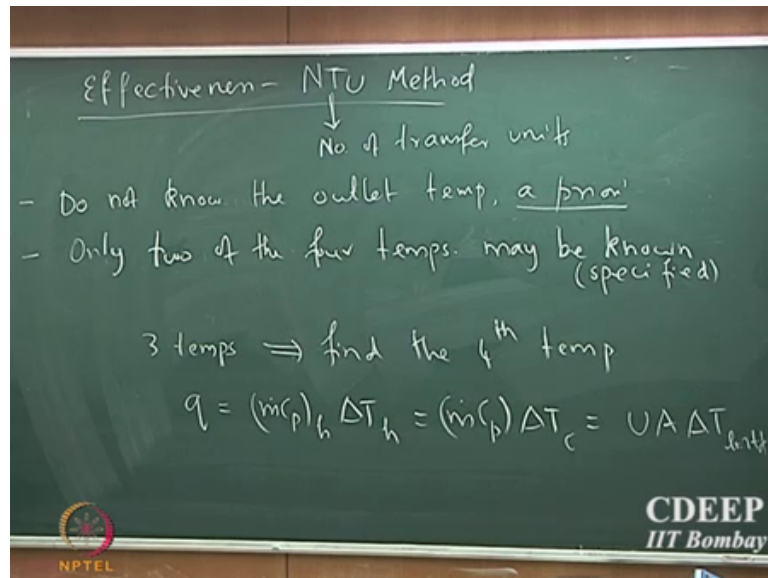 Effectiveness - NTU Method
↓
No. of transfer units
- Do not know the outlet temp, a priori
- Only two of the four temps. may be known
(specified)
3 temps ⇒ find the 4th temp
q = (ṁCp)h ΔTh = (ṁCp) ΔTc = UA ΔTlmtd
CDEEP
IIT Bombay
NPTEL